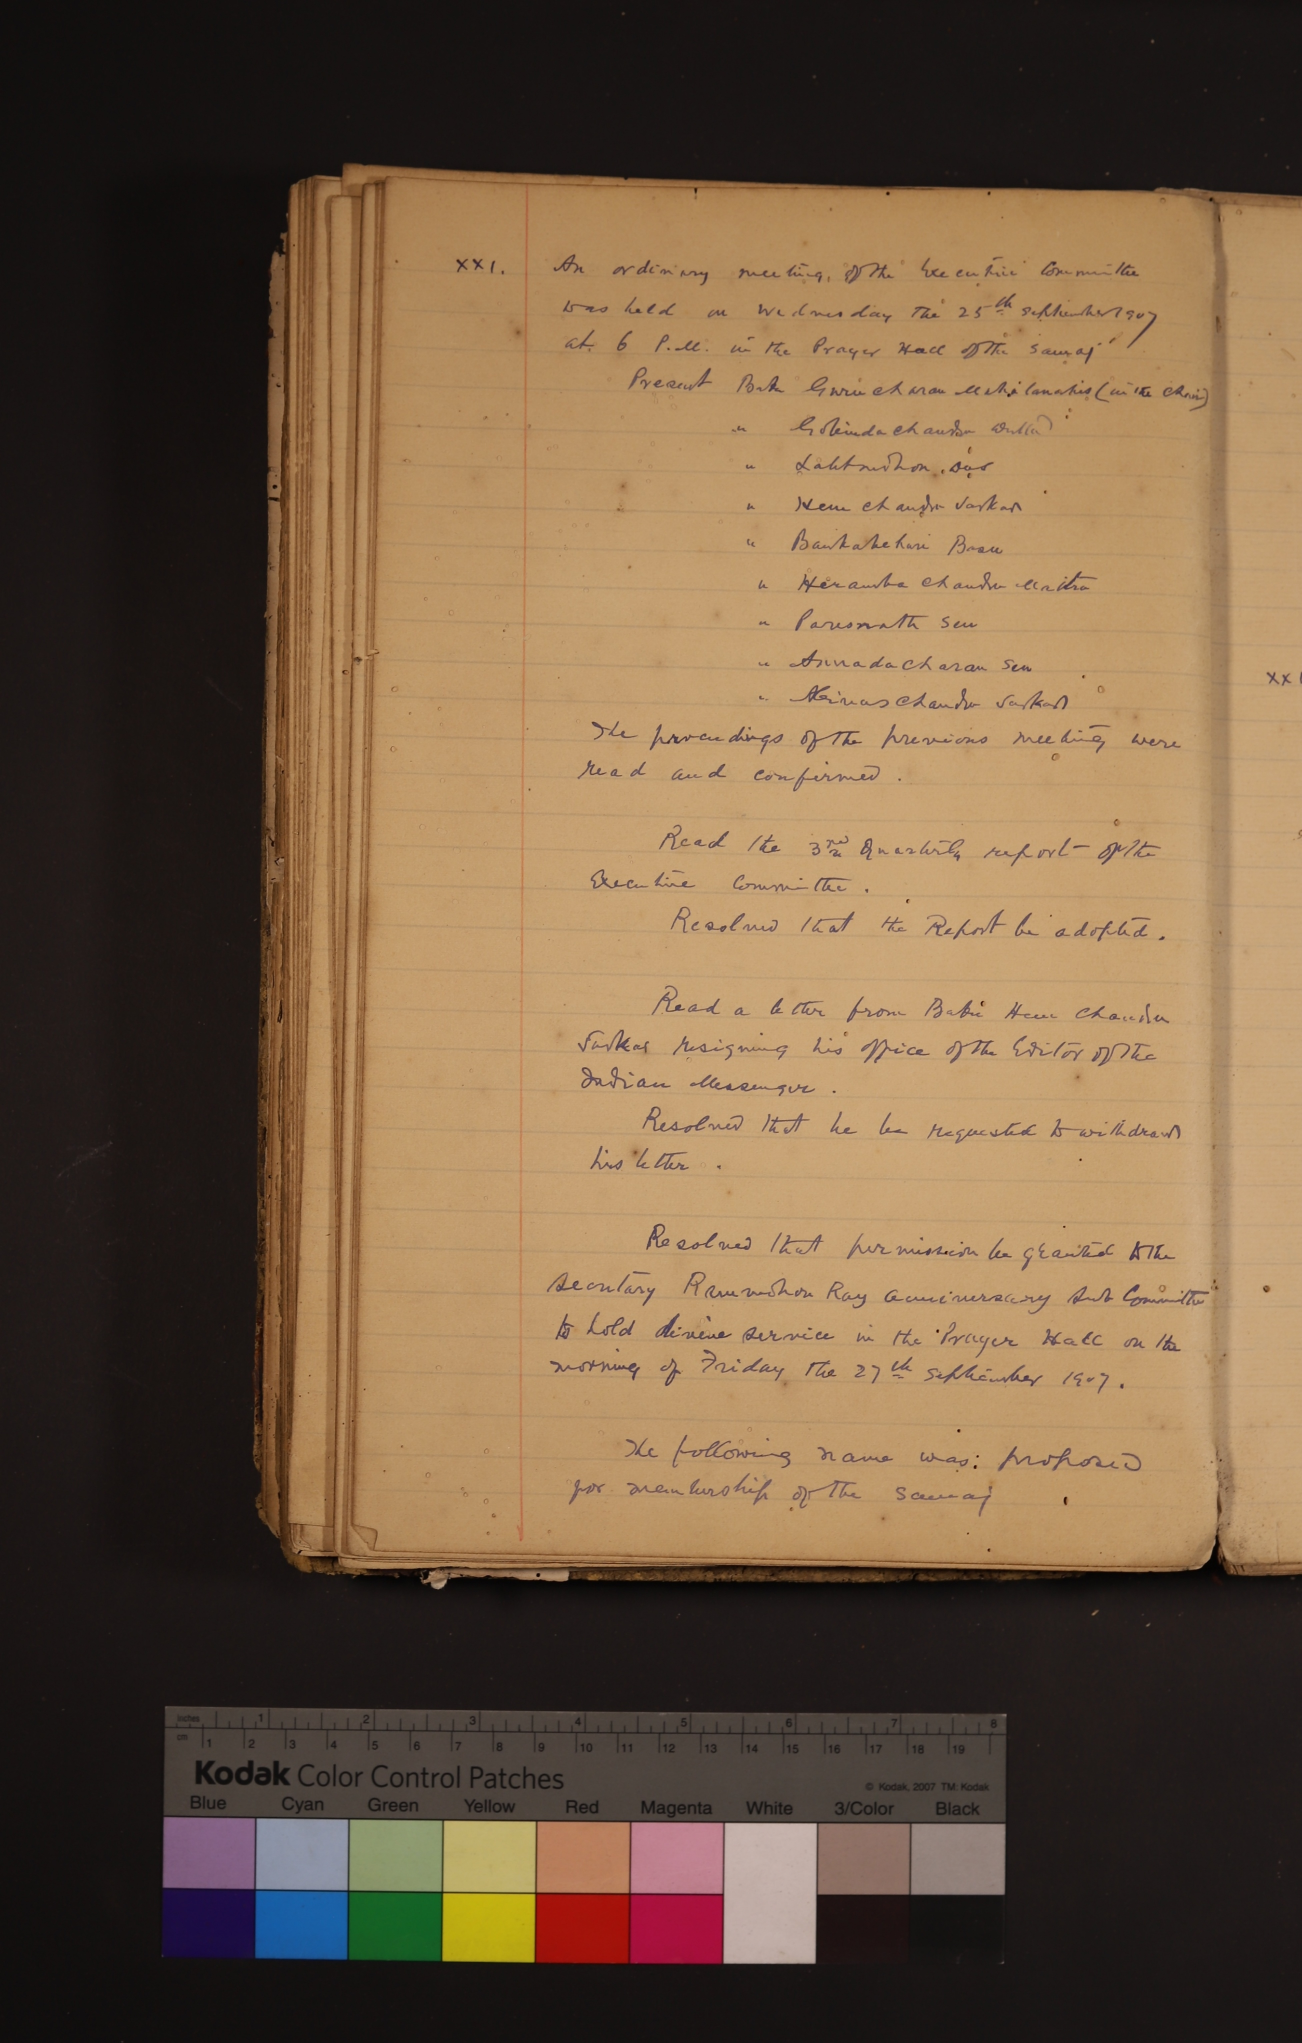 XXI. An ordinary meeting of the Executive Committee
was held on Wednesday the 25th September 1907
at 6 P.M. in the Prayer Hall of the Samaj
Present Babu Gurucharan Mahalanabis (in the Chair)
" Gobindachandra Dutta
" Lalitmohon Das
" Hem Chandra Sarkar
" Bankabehari Basu
" Heramba Chandra Maitra
" Paresnath Sen
" Annadacharan Sen
" Abinas Chandra Sarkar
The proceedings of the previous meeting were
read and confirmed.
Read the 3rd Quarterly report of the
Executive Committee.
Resolved that the Report be adopted.
Read a letter from Babu Hem Chandra
Sarkar resigning his office of the Editor of the
Indian Messenger.
Resolved that he be requested to withdraw
his letter.
Resolved that permission be granted to the
Secretary Rammohon Ray anniversary Sub Committee
to hold divine service in the Prayer Hall on the
morning of Friday the 27th September 1907.
The following name was: proposed
for membership of the Samaj
XX
inches 1 2 3 4 5 6 7 8
cm 1 2 3 4 5 6 7 8 9 10 11 12 13 14 15 16 17 18 19
Kodak Color Control Patches © Kodak, 2007 TM: Kodak
Blue Cyan Green Yellow Red Magenta White 3/Color Black